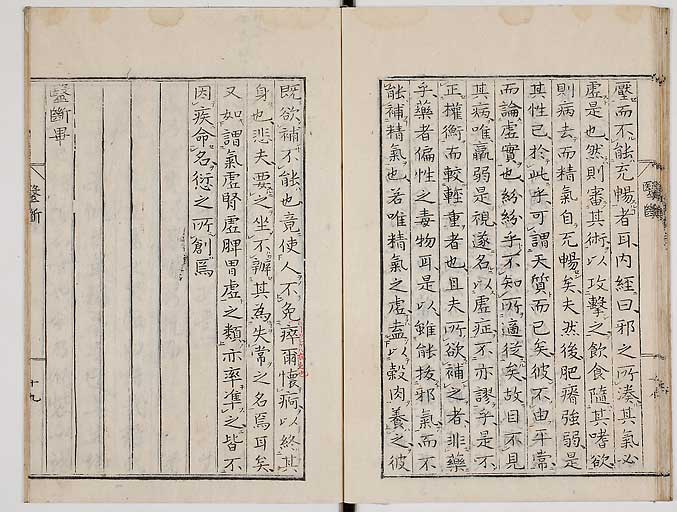 壓而不能充暢者耳内經曰邪之所湊其氣必
虛是也然則審其術以攻擊之飲食隨其嗜欲
則病去而精氣自充暢矣夫然後肥瘠強弱是
其性已於此乎可謂天質而已矣彼不由平常
而論虛實也紛紛乎不知所適從矣故目不見
其病唯羸弱是視遂名以虛症不亦謬乎是不
正權衡而較輕重者也且夫所欲補之者非藥
乎藥者偏性之毒物耳是以雖能拔邪氣而不
能補精氣也若唯精氣之虛盍以穀肉養之彼
醫斷
既欲補不能也竟使人不免瘁爾懷痾以終其
身也悲夫要之坐不辨其為失常之名焉耳矣
又如謂氣虛腎虛脾胃虛之類亦率準之皆不
因疾命名愆之所創焉
醫斷畢
醫斷
十九